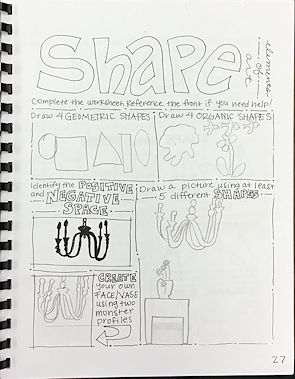 Shape
elements of art
Complete the worksheet. Reference the front if you need help!
Draw 4 GEOMETRIC SHAPES
Draw 4 ORGANIC SHAPES
Identify the POSITIVE
and NEGATIVE
SPACE
Draw a picture using at least
5 different SHAPES
CREATE
your own
FACE/VASE
using two
monster
profiles
27